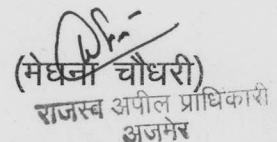 (मेघना चौधरी)
राजस्व अपील प्राधिकारी
अजमेर